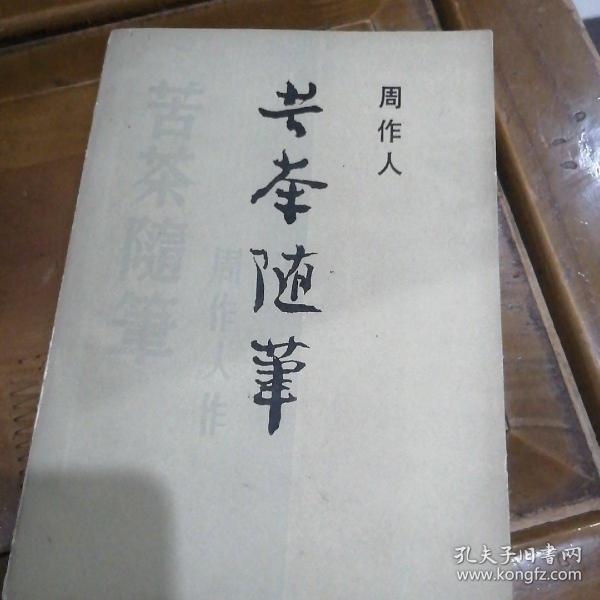 周作人
苦茶随笔
苦茶隨筆
周作人作
孔夫子旧书网
www.kongfz.com